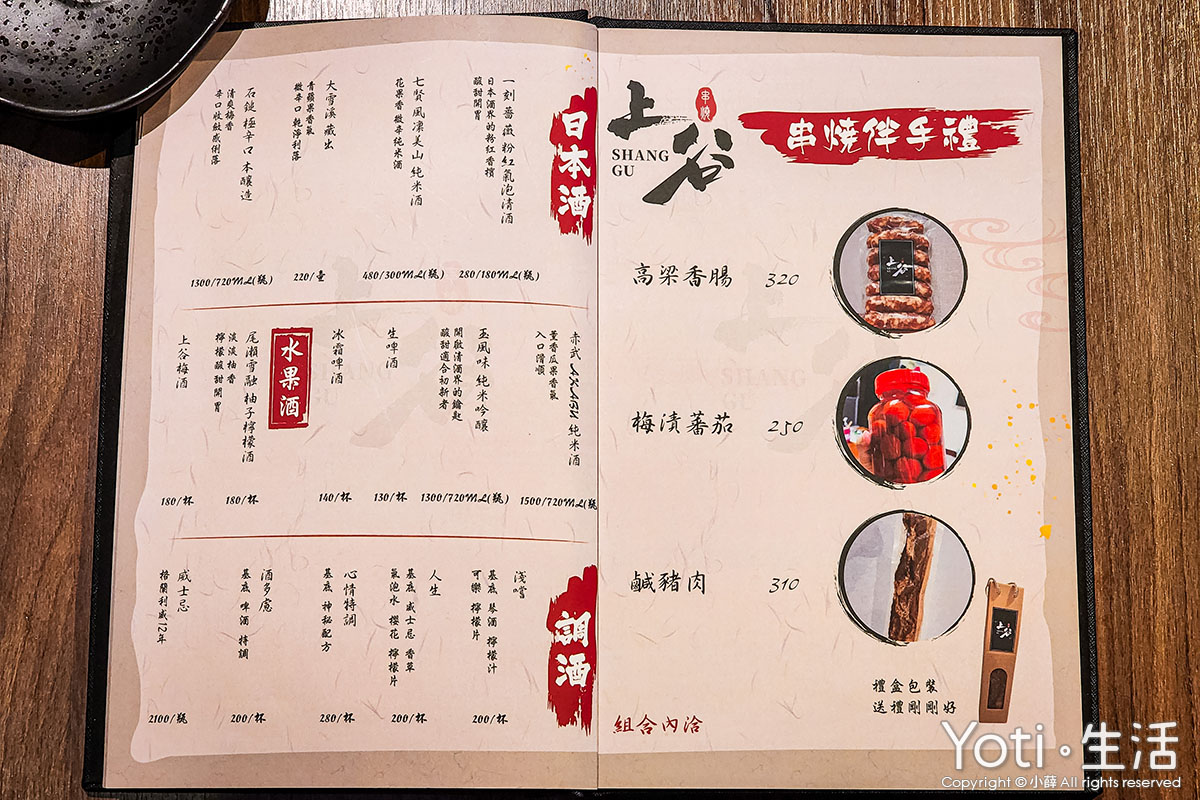 日本酒
一刻薔薇 粉紅氣泡清酒
日本酒界的粉紅香檳
酸甜開胃
280/180ML(瓶)
七賢風凜美山 純米酒
花果香 微辛純米酒
480/300ML(瓶)
大雪溪 藏出
青蘋果香氣
微辛口 乾淨利落
220/壺
石鎚 極辛口 本釀造
清爽梅香
辛口收斂感俐落
1300/720ML(瓶)
赤武 AKABU 純米酒
董香瓜果香氣
入口滑順
1500/720ML(瓶)
玉風味 純米吟釀
開啟清酒界的鑰匙
酸甜適合初新者
1300/720ML(瓶)
生啤酒
130/杯
冰霜啤酒
140/杯
水果酒
尾瀨雪融 柚子檸檬酒
淡淡柚香
檸檬酸甜開胃
180/杯
上谷梅酒
180/杯
調酒
淺嚐
基底 琴酒 檸檬汁
可樂 檸檬片
200/杯
人生
基底 威士忌 香草
氣泡水 櫻花 檸檬片
200/杯
心情特調
基底 神秘配方
280/杯
酒多慮
基底 啤酒 特調
200/杯
威士忌
格蘭利威12年
2100/瓶
上谷
串燒
SHANG
GU
串燒伴手禮
高梁香腸 320
梅漬蕃茄 250
鹹豬肉 310
禮盒包裝
送禮剛剛好
組合內洽
Yoti·生活
Copyright © 小薛 All rights reserved